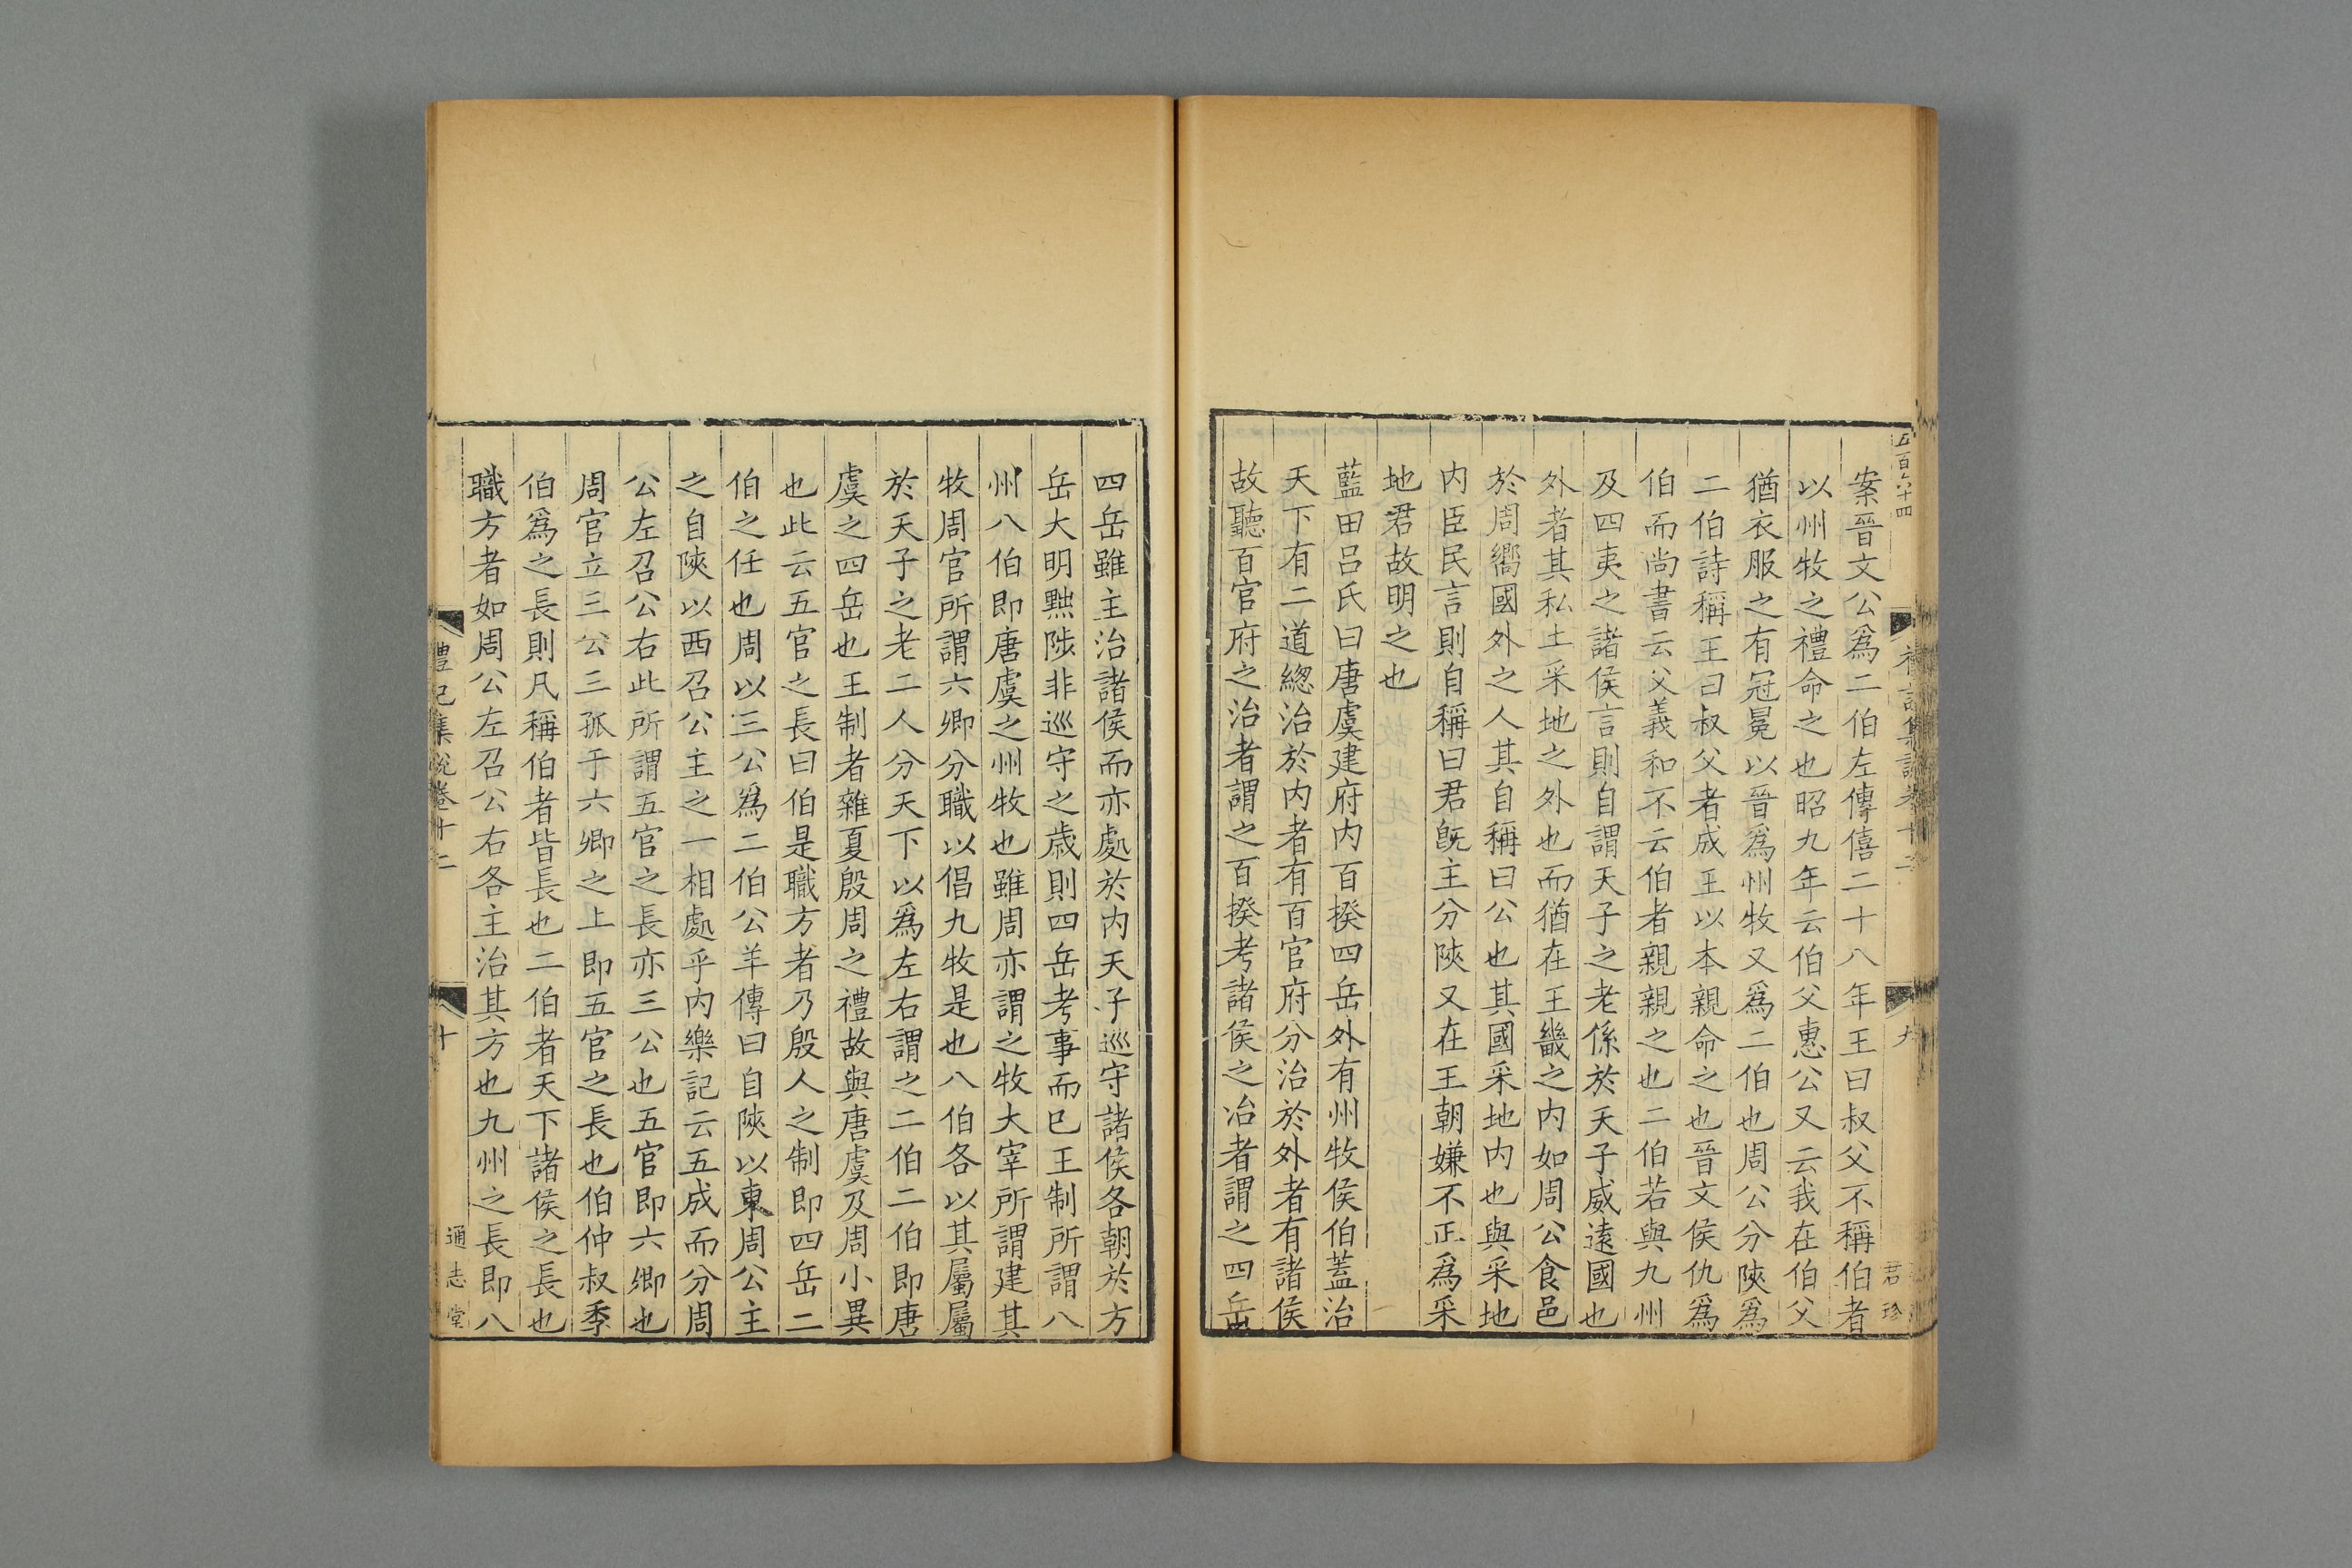 五百六十四
禮記集說卷十二
九
君珍
案晉文公為二伯左傳僖二十八年王曰叔父不稱伯者
以州牧之禮命之也昭九年云伯父惠公又云我在伯父
猶衣服之有冠冕以晉為州牧又為二伯也周公分陝為
二伯詩稱王曰叔父者成王以本親命之也晉文侯仇為
伯而尚書云父義和不云伯者親親之也二伯若與九州
及四夷之諸侯言則自謂天子之老係於天子威遠國也
外者其私土采地之外也而猶在王畿之內如周公食邑
於周嚮國外之人其自稱曰公也其國采地內也與采地
內臣民言則自稱曰君旣主分陝又在王朝嫌不正為采
地君故明之也
藍田呂氏曰唐虞建府內百揆四岳外有州牧侯伯蓋治
天下有二道緫治於內者有百官府分治於外者有諸侯
故聽百官府之治者謂之百揆考諸侯之治者謂之四岳
四岳雖主治諸侯而亦處於內天子巡守諸侯各朝於方
岳大明黜陟非巡守之歲則四岳考事而已王制所謂八
州八伯即唐虞之州牧也雖周亦謂之牧大宰所謂建其
牧周官所謂六卿分職以倡九牧是也八伯各以其屬屬
於天子之老二人分天下以為左右謂之二伯二伯即唐
虞之四岳也王制者雜夏殷周之禮故與唐虞及周小異
也此云五官之長曰伯是職方者乃殷人之制即四岳二
伯之任也周以三公為二伯公羊傳曰自陝以東周公主
之自陝以西召公主之一相處乎內樂記云五成而分周
公左召公右此所謂五官之長亦三公也五官即六卿也
周官立三公三孤于六卿之上即五官之長也伯仲叔季
伯為之長則凡稱伯者皆長也二伯者天下諸侯之長也
職方者如周公左召公右各主治其方也九州之長即八
禮記集說卷十二
十
通志堂